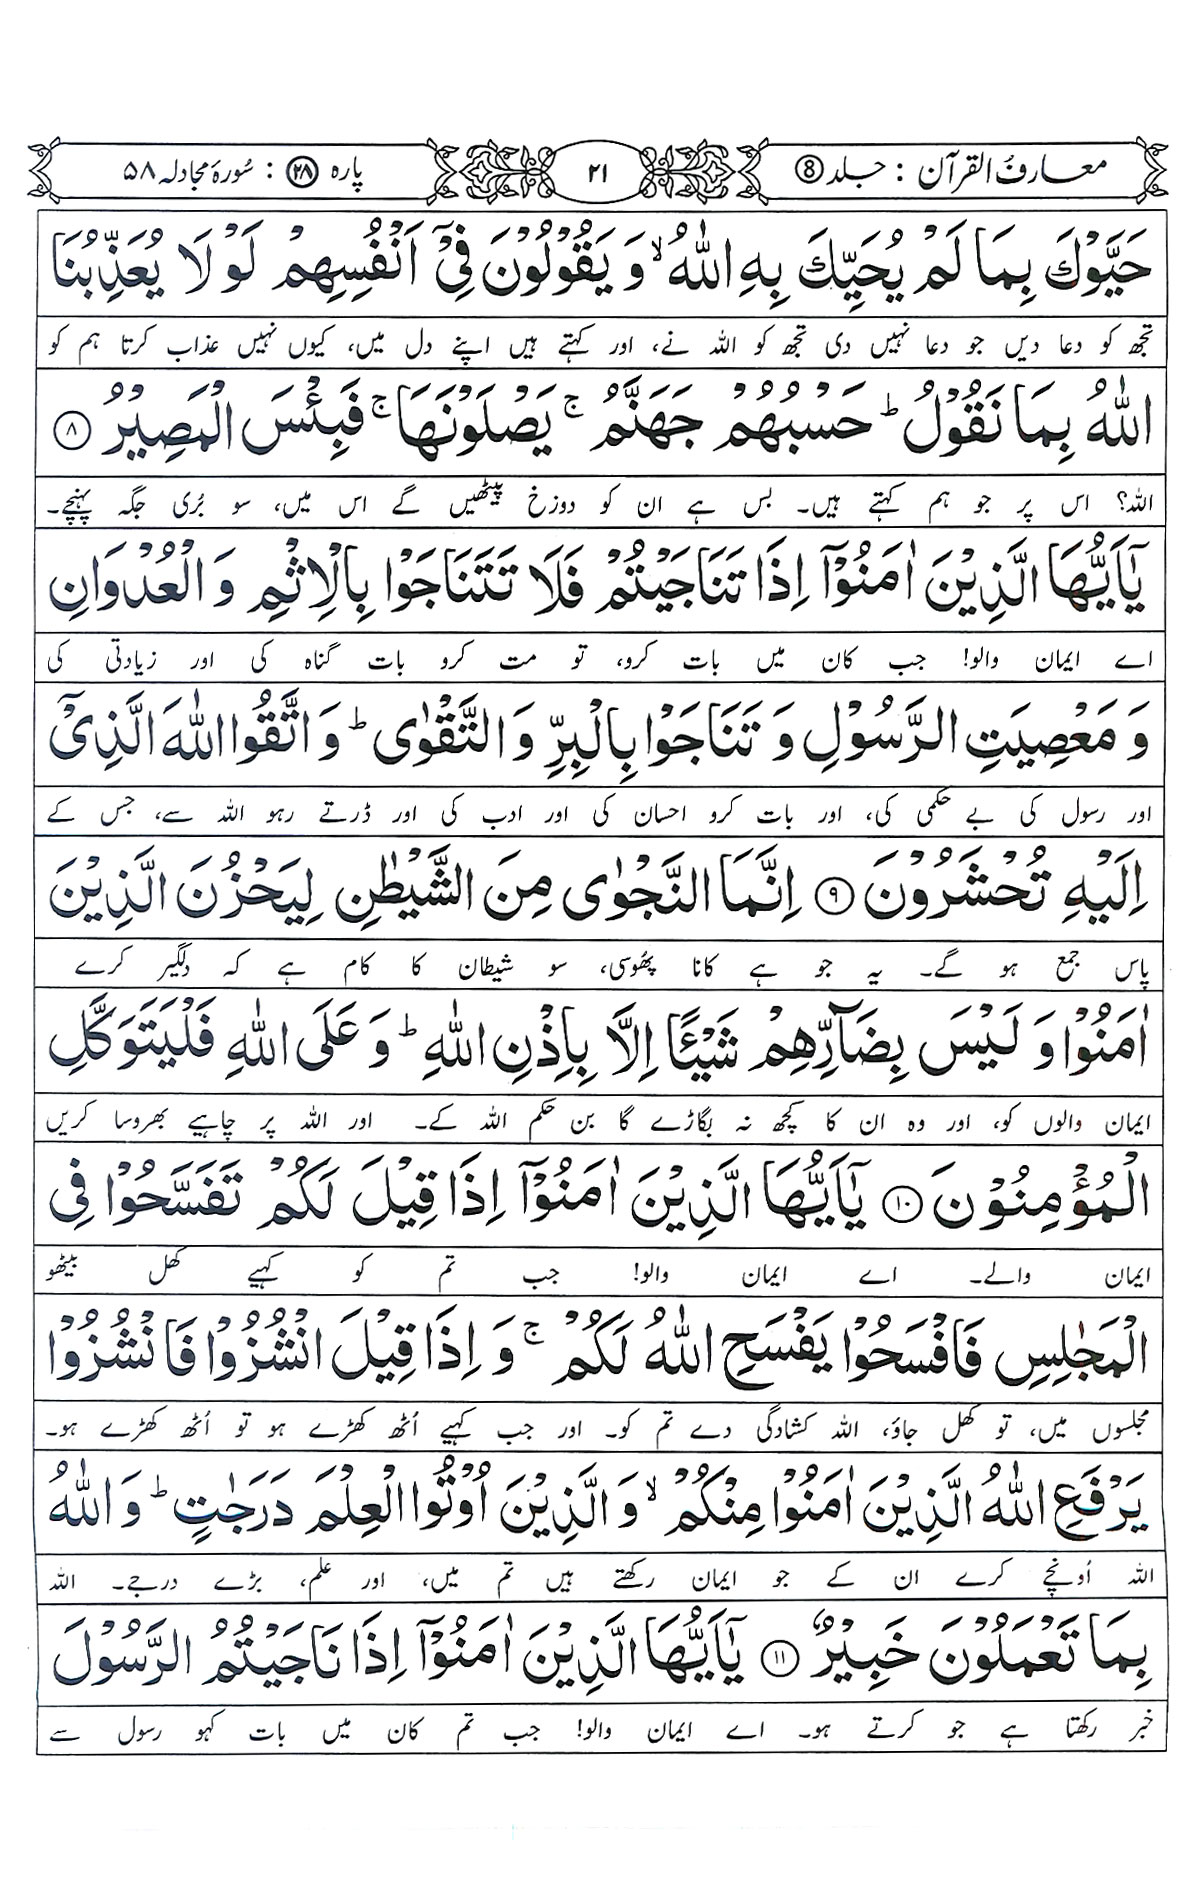 معارفُ القرآن : جلد ⑧
۲۱
پارہ ۲۸ : سُورۃ مجادلہ ۵۸
حَيَّوْكَ بِمَا لَمْ يُحَيِّكَ بِهِ اللّٰهُ ۙ وَ يَقُوْلُوْنَ فِيْۤ اَنْفُسِهِمْ لَوْ لَا يُعَذِّبُنَا
تجھ کو دعا دیں جو دعا نہیں دی تجھ کو اللہ نے، اور کہتے ہیں اپنے دل میں، کیوں نہیں عذاب کرتا ہم کو
اللّٰهُ بِمَا نَقُوْلُ ؕ حَسْبُهُمْ جَهَنَّمُ ۚ يَصْلَوْنَهَا ۚ فَبِئْسَ الْمَصِيْرُ ۸
اللہ؟ اس پر جو ہم کہتے ہیں۔ بس ہے ان کو دوزخ پیٹھیں گے اس میں، سو بُری جگہ پہنچے۔
يٰۤاَيُّهَا الَّذِيْنَ اٰمَنُوْۤا اِذَا تَنَاجَيْتُمْ فَلَا تَتَنَاجَوْا بِالْاِثْمِ وَ الْعُدْوَانِ
اے ایمان والو! جب کان میں بات کرو، تو مت کرو بات گناہ کی اور زیادتی کی
وَ مَعْصِيَتِ الرَّسُوْلِ وَ تَنَاجَوْا بِالْبِرِّ وَ التَّقْوٰى ؕ وَ اتَّقُوا اللّٰهَ الَّذِيْۤ
اور رسول کی بے حکمی کی، اور بات کرو احسان کی اور ادب کی اور ڈرتے رہو اللہ سے، جس کے
اِلَيْهِ تُحْشَرُوْنَ ۹ اِنَّمَا النَّجْوٰى مِنَ الشَّيْطٰنِ لِيَحْزُنَ الَّذِيْنَ
پاس جمع ہو گے۔ یہ جو ہے کانا پھُوسی، سو شیطان کا کام ہے کہ دلگیر کرے
اٰمَنُوْا وَ لَيْسَ بِضَآرِّهِمْ شَيْـًٔا اِلَّا بِاِذْنِ اللّٰهِ ؕ وَ عَلَى اللّٰهِ فَلْيَتَوَكَّلِ
ایمان والوں کو، اور وہ ان کا کچھ نہ بگاڑے گا بن حکم اللہ کے۔ اور اللہ پر چاہیے بھروسا کریں
الْمُؤْمِنُوْنَ ۱۰ يٰۤاَيُّهَا الَّذِيْنَ اٰمَنُوْۤا اِذَا قِيْلَ لَكُمْ تَفَسَّحُوْا فِي
ایمان والے۔ اے ایمان والو! جب تم کو کہیے کھل بیٹھو
الْمَجٰلِسِ فَافْسَحُوْا يَفْسَحِ اللّٰهُ لَكُمْ ۚ وَ اِذَا قِيْلَ انْشُزُوْا فَانْشُزُوْا
مجلسوں میں، تو کھل جاؤ، اللہ کشادگی دے تم کو۔ اور جب کہیے اُٹھ کھڑے ہو تو اُٹھ کھڑے ہو۔
يَرْفَعِ اللّٰهُ الَّذِيْنَ اٰمَنُوْا مِنْكُمْ ۙ وَ الَّذِيْنَ اُوْتُوا الْعِلْمَ دَرَجٰتٍ ؕ وَ اللّٰهُ
اللہ اُونچے کرے ان کے جو ایمان رکھتے ہیں تم میں، اور علم، بڑے درجے۔ اللہ
بِمَا تَعْمَلُوْنَ خَبِيْرٌ ۱۱ يٰۤاَيُّهَا الَّذِيْنَ اٰمَنُوْۤا اِذَا نَاجَيْتُمُ الرَّسُوْلَ
خبر رکھتا ہے جو کرتے ہو۔ اے ایمان والو! جب تم کان میں بات کہو رسول سے